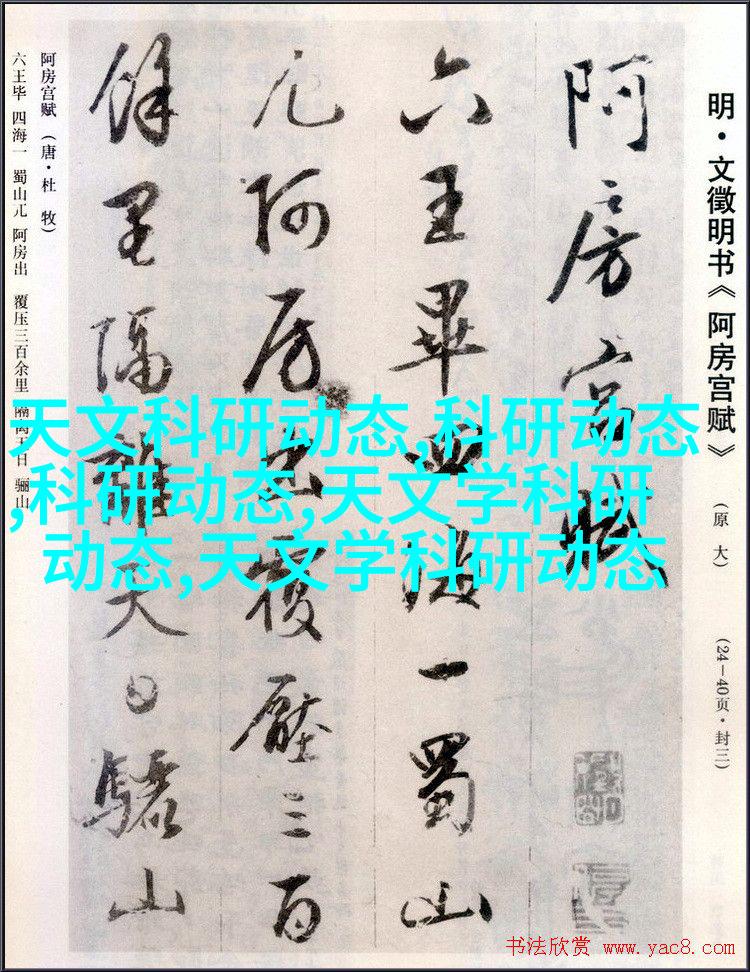 明·文徵明书《阿房宫赋》（原大）（24—40页·封三）
阿房宫赋
六王畢四海一蜀山
兀阿房出覆壓三百
餘里隔離天日驪山
阿房宫赋（唐·杜 牧）
六王毕 四海一 蜀山兀 阿房出 覆压三百余里 隔离天日 骊山
天文科研动态,科研动态
,科研动态,天文学科研
动态,天文学科研动态
书法欣赏 www.yac8.com